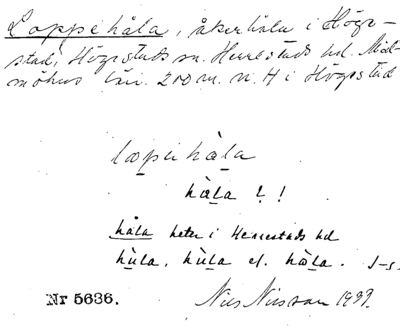 Loppehåla, åkerhåla i Högs-
stad, Högestads sn. Herrestads hd. Mal-
möhus län. 200 m. n. H i Högestad
lo̤pehàla
hàla ? !
håla heter i Herrestads hd
hùla, hùla el. hòla. J-s.
Nr 5636. Nils Nilsson 1937.